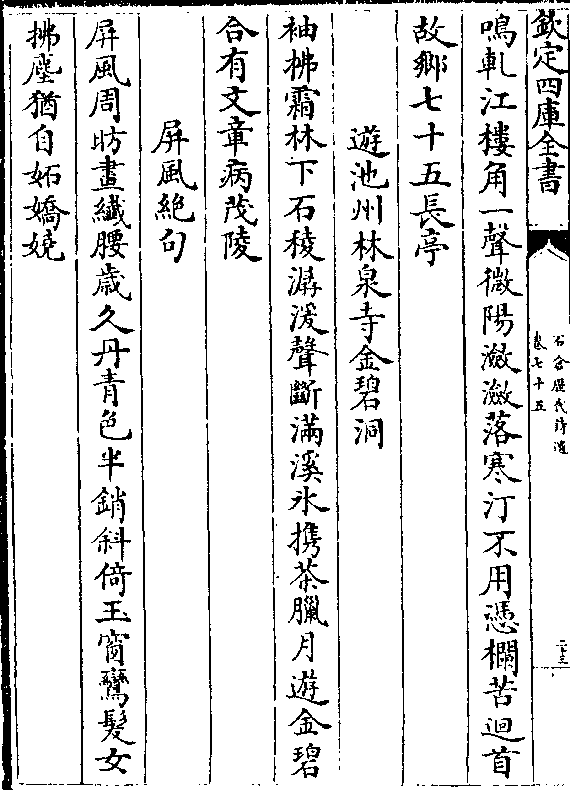 欽定四庫全書
石倉歷代詩選
卷七十五
二十三
鳴軋江樓角一聲微陽瀲瀲落寒汀不用憑欄苦迴首
故鄉七十五長亭
遊池州林泉寺金碧洞
袖拂霜林下石稜潺湲聲斷滿溪氷携茶臘月遊金碧
合有文章病茂陵
屏風絶句
屏風周昉畫纎腰歳久丹青色半銷斜倚玉窗鸞髮女
拂塵猶自妬嬌嬈